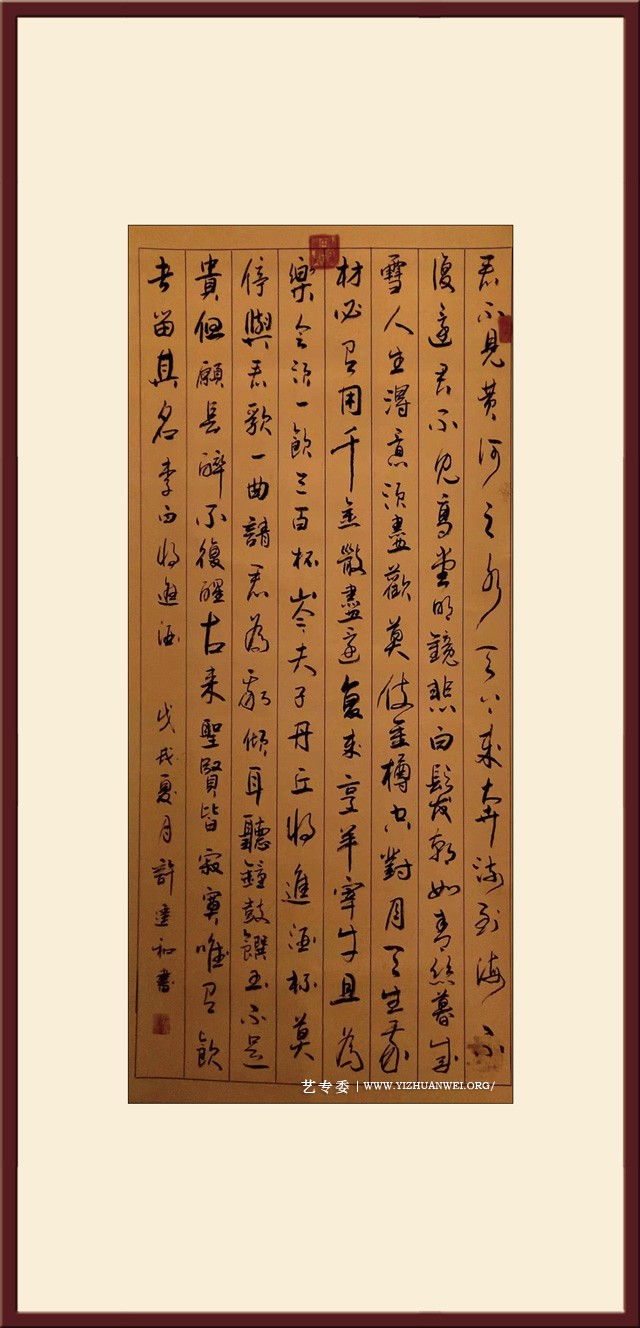 君不見黄河之水天上来奔流到海不
復還君不見高堂明鏡悲白髮朝如青絲暮成
雪人生得意須盡歡莫使金樽空對月天生我
材必有用千金散盡還復来烹羊宰牛且為
樂会須一飲三百杯岑夫子丹丘將進酒杯莫
停與君歌一曲請君為我傾耳聽鐘鼓饌玉不足
貴但願長醉不復醒古来聖賢皆寂寞唯有飲
者留其名李白將進酒 戊戌夏月許和書
艺专委 | WWW.YIZHUANWEI.ORG/